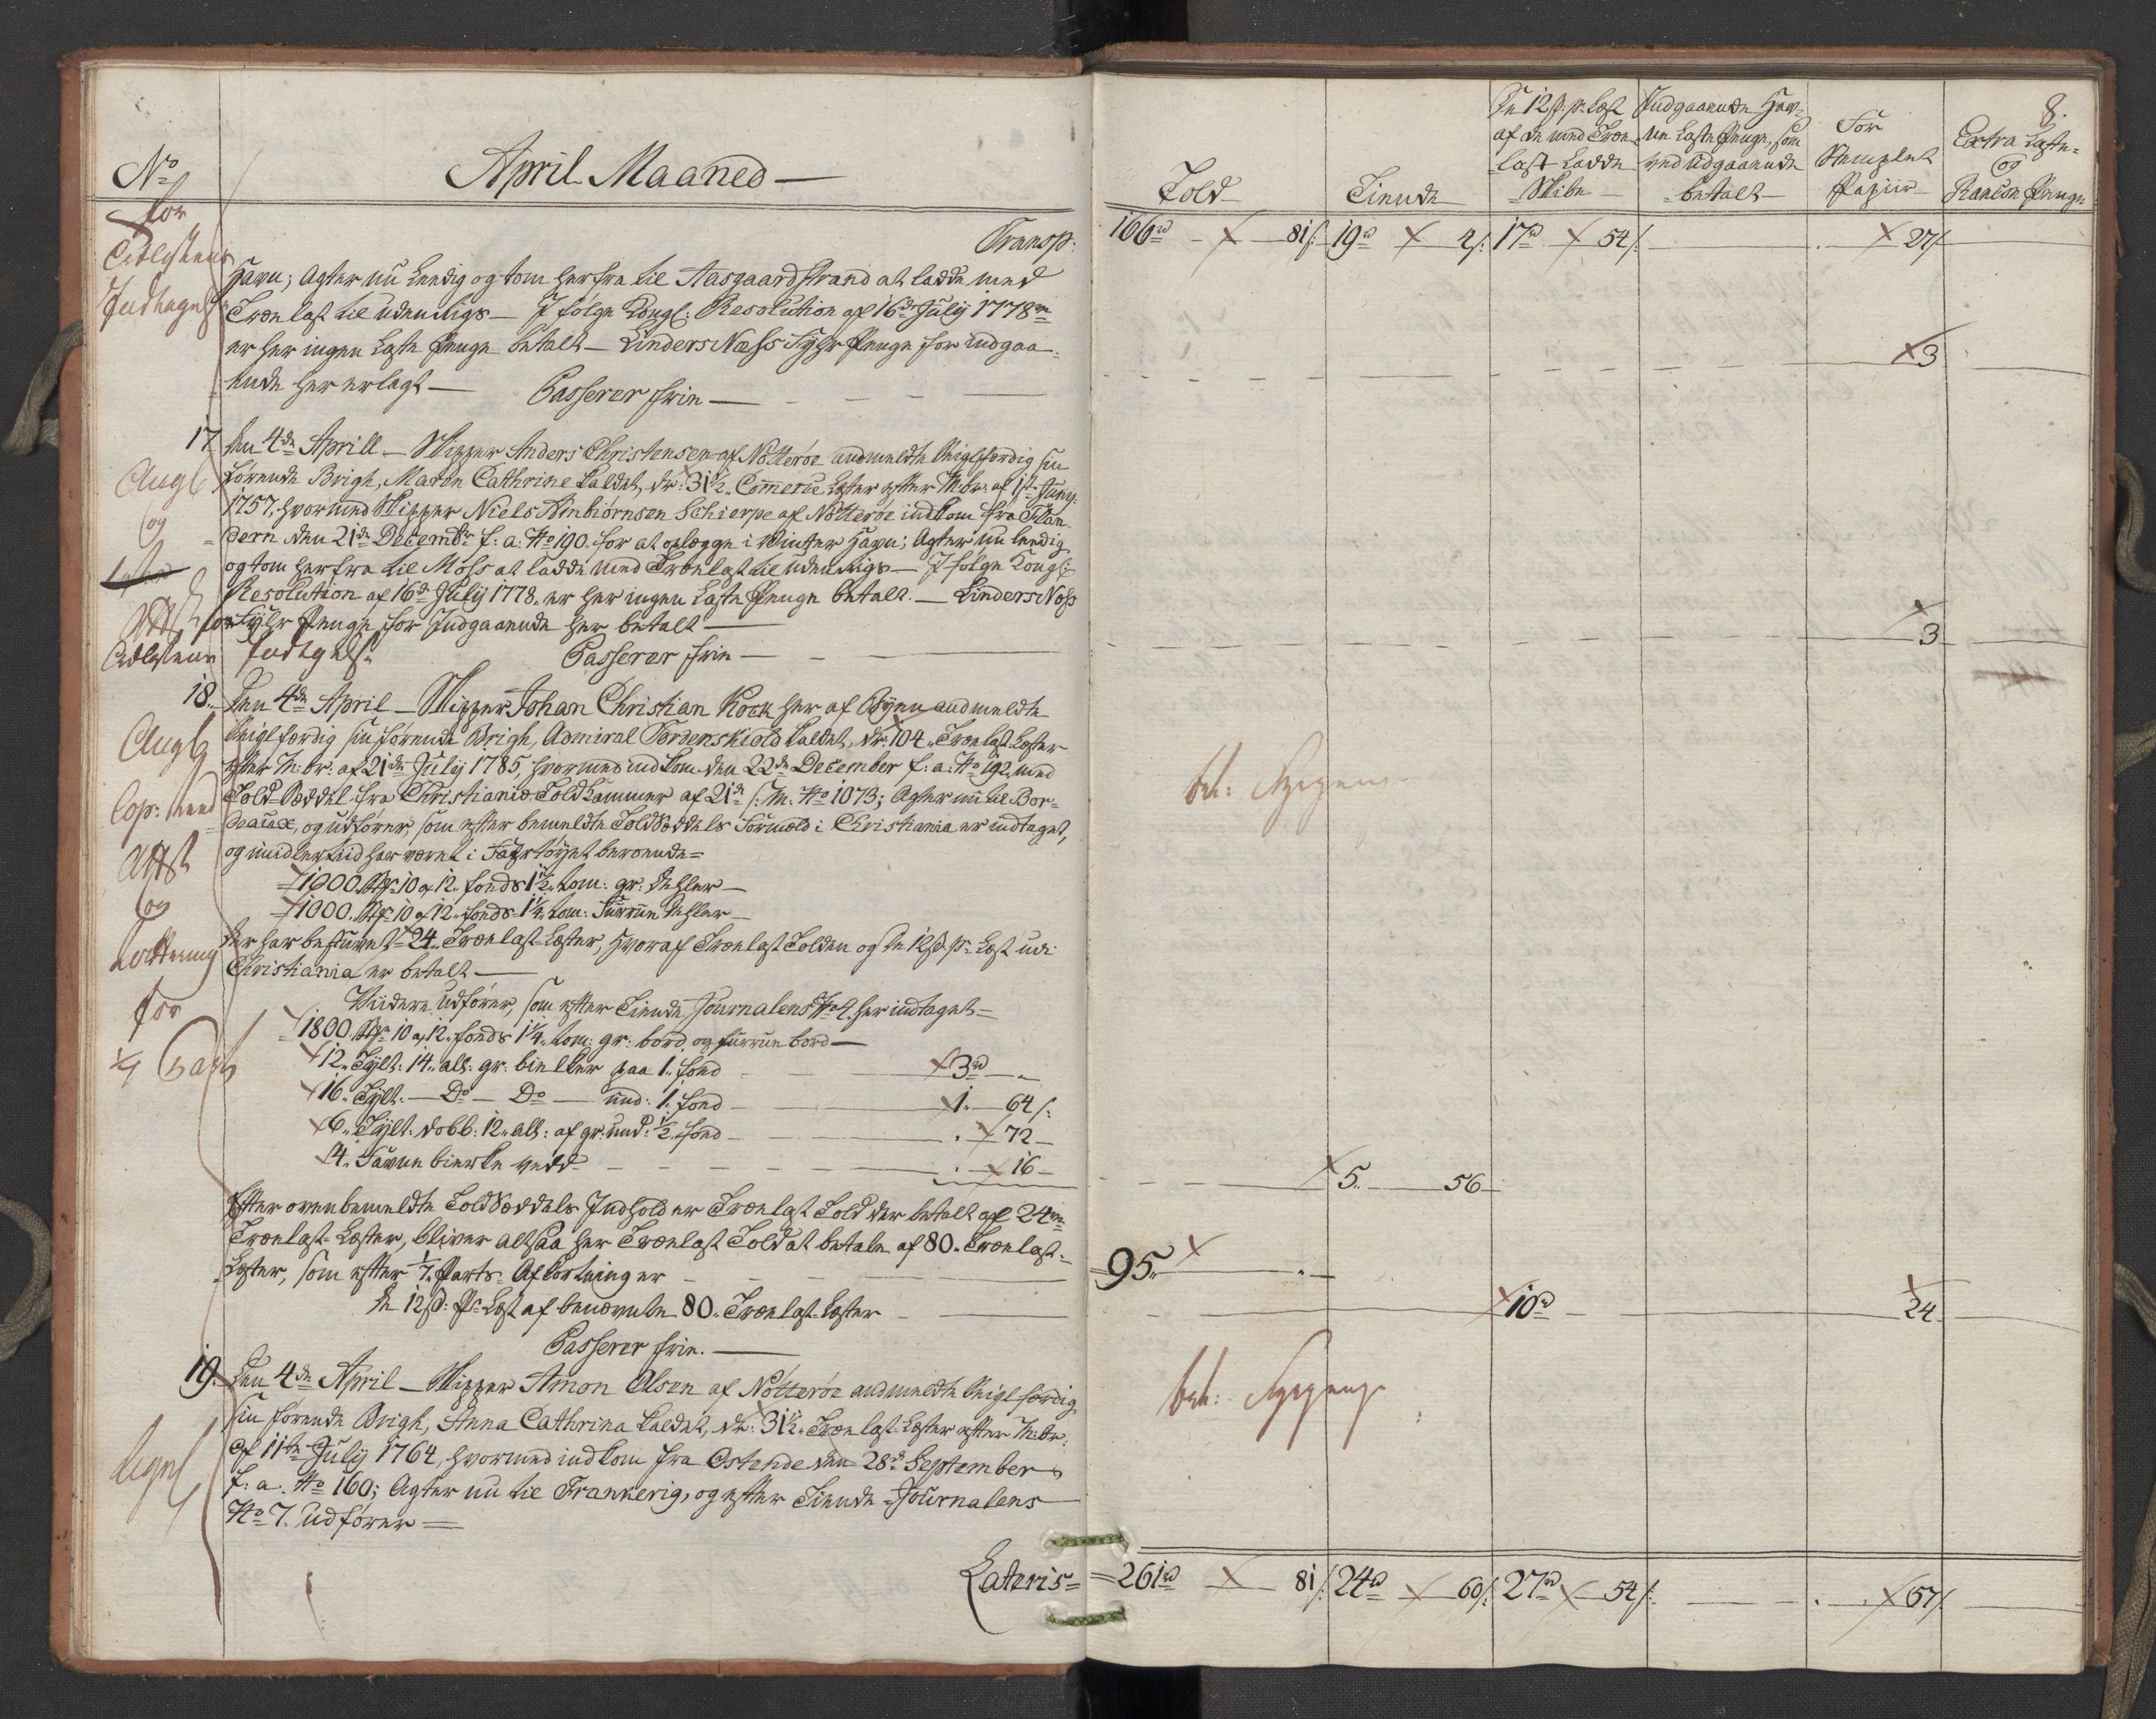 No
April Maaned
Transp:
Havn; agter nu leedig og tom herfra til Aasgaardstrand at ladde med
Trælast til udenrigs — I følge Kongl: Resolution af 16de July 1778
er her ingen Læste Penge betalt — LindersNæss Fyhr Penge for indgaa-
ende her erlagt — Passerer frie —
17. Den 4de Aprill — Skipper Anders Christensen af Nötteröe anmeldte seiglfærdig sin
førende Brigh, Maren Cathrine kaldet, dr: 31½ Commerce Læster efter M:br: af 1ste Juny
1757, hvormed Skipper Niels Arnbiörnsen Schierpe af Nötteröe indkom fra Flan-
dern den 21de Decembr f: a: No 190. for at oplægge i Winter Havn; Agter nu leedig
og tom herfra til Moss at ladde med Trælast til udenrigs — I følge Kongl:
Resolution af 16de July 1778 er her ingen Læste Penge betalt. — LindersNæss
Fyhr Penge for Indgaaende her betalt —
Passerer frie —
18. Den 4de April — Skipper Johan Christian Kock her af Byen anmeldte
seiglfærdig sin førende Brigh, Admiral Tordenskiold kaldet, dr: 104 Trælast Læster
efter M:br: af 21de July 1785, hvormed indkom den 22de December f: a: No 192, med
Told-Seddel fra Christiania Toldkammer af 21de s: M: No 1073; Agter nu til Bor-
deaux, og udfører, som efter bemeldte Toldseddels Formeld i Christiania er indtaget,
og imidlertiid har været i Fahrtøyet beroende =
1000 St: 10 a 12 fonds 1½ tom: gr: Dehler —
1000 St: 10 a 12 fonds 1¼ tom: Furrue Dehler —
der har bestuvet 24 Trælast-Læster, hvoraf Trælast Tolden og de 12 s: pr: Læst udi
Christiania er betalt —
Viidere udfører, som efter Tiende Journalens No 4. her indtaget =
1800 St: 10 a 12 fonds 1¼ tom: gr: bord og furrue bord —
12 Tylt: 14 all: gr: bielker paa 1 fond — 3 rd — „
16 Tylt: — Do — Do — und: 1 fond — 1. — 64 s:
6 Tylt: dobb: 12 all: af gr: und: ½ fond — . — 72 —
4 Favne bierke vedd — . — 16 —
Efter ovenbemeldte Toldseddels Indhold er Trælast Told der betalt af 24
Trælast-Læster, bliver altsaa her Trælast Told at betale af 80 Trælast-
Læster, som efter 1/7 Parts Afkortning er —
de 12 s: Pr: Læst af benævnte 80 Trælast-Læster —
Passerer frie. —
19. Den 4de April — Skipper Amon Olsen af Nötteröe anmeldte seiglfærdig
sin førende Brigh, Anna Cathrina kaldet, dr: 31½ Trælast-Læster efter M:br:
af 11te July 1764, hvormed indkom fra Ostende den 28de September
f: a: No 160; Agter nu til Frankerig, og efter Tiende-Journalens
No 7. udfører =
Lateris =
for
Indtagelse
Angl
og
Attest for
Indtagelse
Angl
Cop: med
Attst
og
for
8.
Told
Tiende
De 12 s: pr: Læst
af de med Træ-
last-Ladde
Skibe
Indgaaende Hav-
ne Læste Penge, som
ved udgaaende
betalt
For
Stemplet
Papiir
Extra Læste-
og
Rancon Penge
166 rd — 81 s: 19 rd 4 s: 17 rd 54 s: — . — 27 s:
3
3
5. — 56
95. „ —
10 rd — 24
261 rd — 81 s: 24 rd — 60 s: 27 rd — 54 s: — . — 57 s: